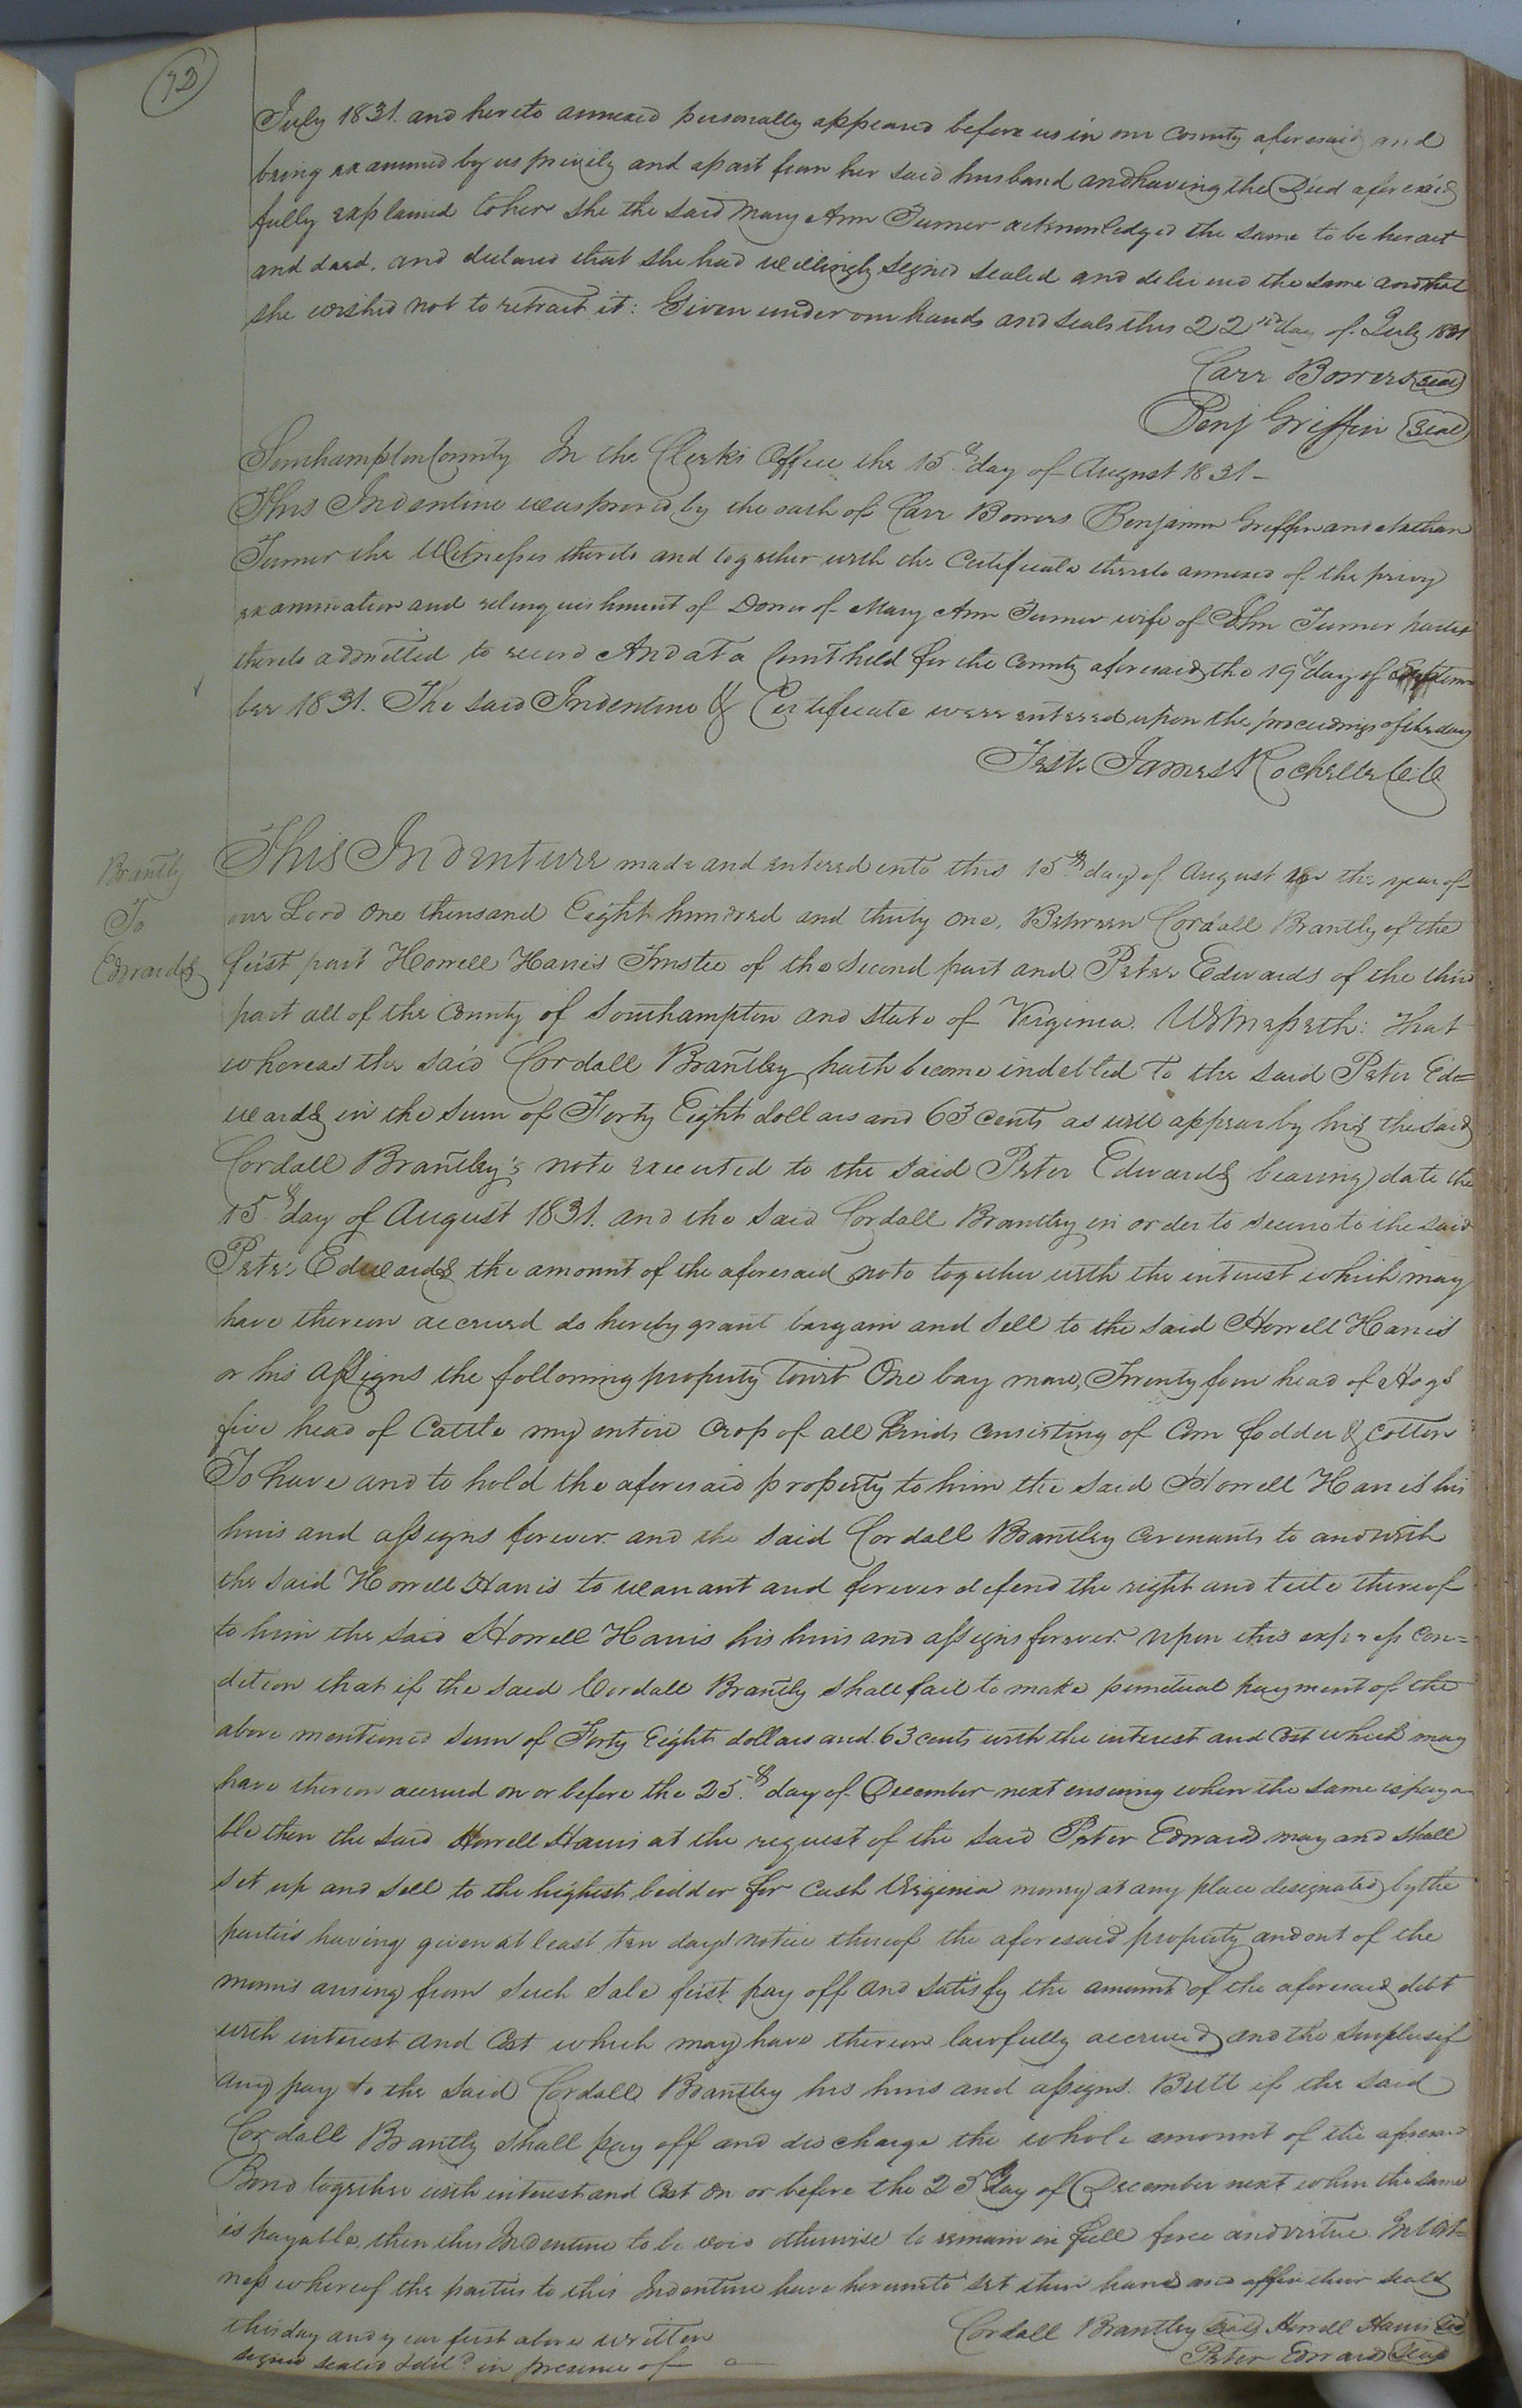 72
July 1831. and hereto annexed personally appeared before us in our County aforesaid and
being examined by us privily and apart from her said husband and having the Deed aforesaid
fully explained to her she the said Mary Ann Turner acknowledged the same to be her act
and deed. and declared that she had willingly signed sealed and delivered the same and that
she wished not to retract it: Given under our hands and seals this 22nd day of July 1831
Carr Bowers (seal)
Benj Griffin (Seal)
Southampton County In the Clerks Office the 15th day of August 1831 -
This Indenture was proved by the oath of Carr Bowers Benjamin Griffin and Nathan
Turner the Witnesses thereto and together with the Certificate thereto annexed of the privy
examination and relinquishment of Dower of Mary Ann Turner wife of John Turner parties
thereto admitted to record And at a Court held for the County aforesaid the 19th day of Septem
ber 1831. The said Indenture & Certificate were entered upon the proceedings of the day
Teste James Rochelle C.C.
Brantly
To
Edwards
This Indenture made and entered into this 15th day of August in the year of
our Lord One thousand Eight hundred and thirty one. Between Cordall Brantly of the
first part Howell Harris Trustee of the second part and Peter Edwards of the third
part all of the County of Southampton and State of Virginia. Witnesseth: That
whereas the said Cordall Brantley hath become indebted To the said Peter Ed=
wards in the Sum of Forty Eight dollars and 63 cents as will appear by his the said
Cordall Brantley's note executed to the said Peter Edwards bearing date the
15th day of August 1831. and the said Cordall Brantley in order to secure to the said
Peter Edwards the amount of the aforesaid note together with the interest which may
have thereon accrued do hereby grant bargain and sell to the said Howell Harris
or his assigns the following property Towit One bay mare, Twenty four head of Hogs
five head of Cattle my entire Crop of all kinds consisting of Corn fodder & Cotton
To have and to hold the aforesaid property to him the said Howell Harris his
heirs and assigns forever. and the said Cordall Brantley covenants to and with
the said Howell Harris to warrant and forever defend the right and title thereof
to him the said Howell Harris his heirs and assigns forever. upon this express con=
dition that if the said Cordall Brantly shall fail to make punctual payment of the
above mentioned sum of Forty Eight dollars and 63 cents with the interest and Cost which may
have thereon accrued on or before the 25th day of December next ensuing when the same is paya
ble then the said Howell Harris at the request of the said Peter Edward may and shall
set up and sell to the highest bidder for cash Virginia money at any place designated by the
parties having given at least ten days notice thereof the aforesaid property and out of the
monies arising from such sale first pay off and satisfy the amount of the aforesaid debt
with interest and Cost which may have thereon lawfully accrued and the surplus if
any pay to the said Cordall Brantley his heirs and assigns. Butt if the said
Cordall Brantly shall pay off and discharge the whole amount of the aforesaid
Bond together with interest and Cost on or before the 25th day of December next when the same
is payable, then this Indenture to be void otherwise to remain in full force and virtue. In Wit=
ness whereof the parties to this Indenture have hereunto set their hands and affix their seals
this day and year first above written
Cordall Brantley (seal) Howell Harris (seal)
signed sealed & deld in presence of
Peter Edward (Seal)